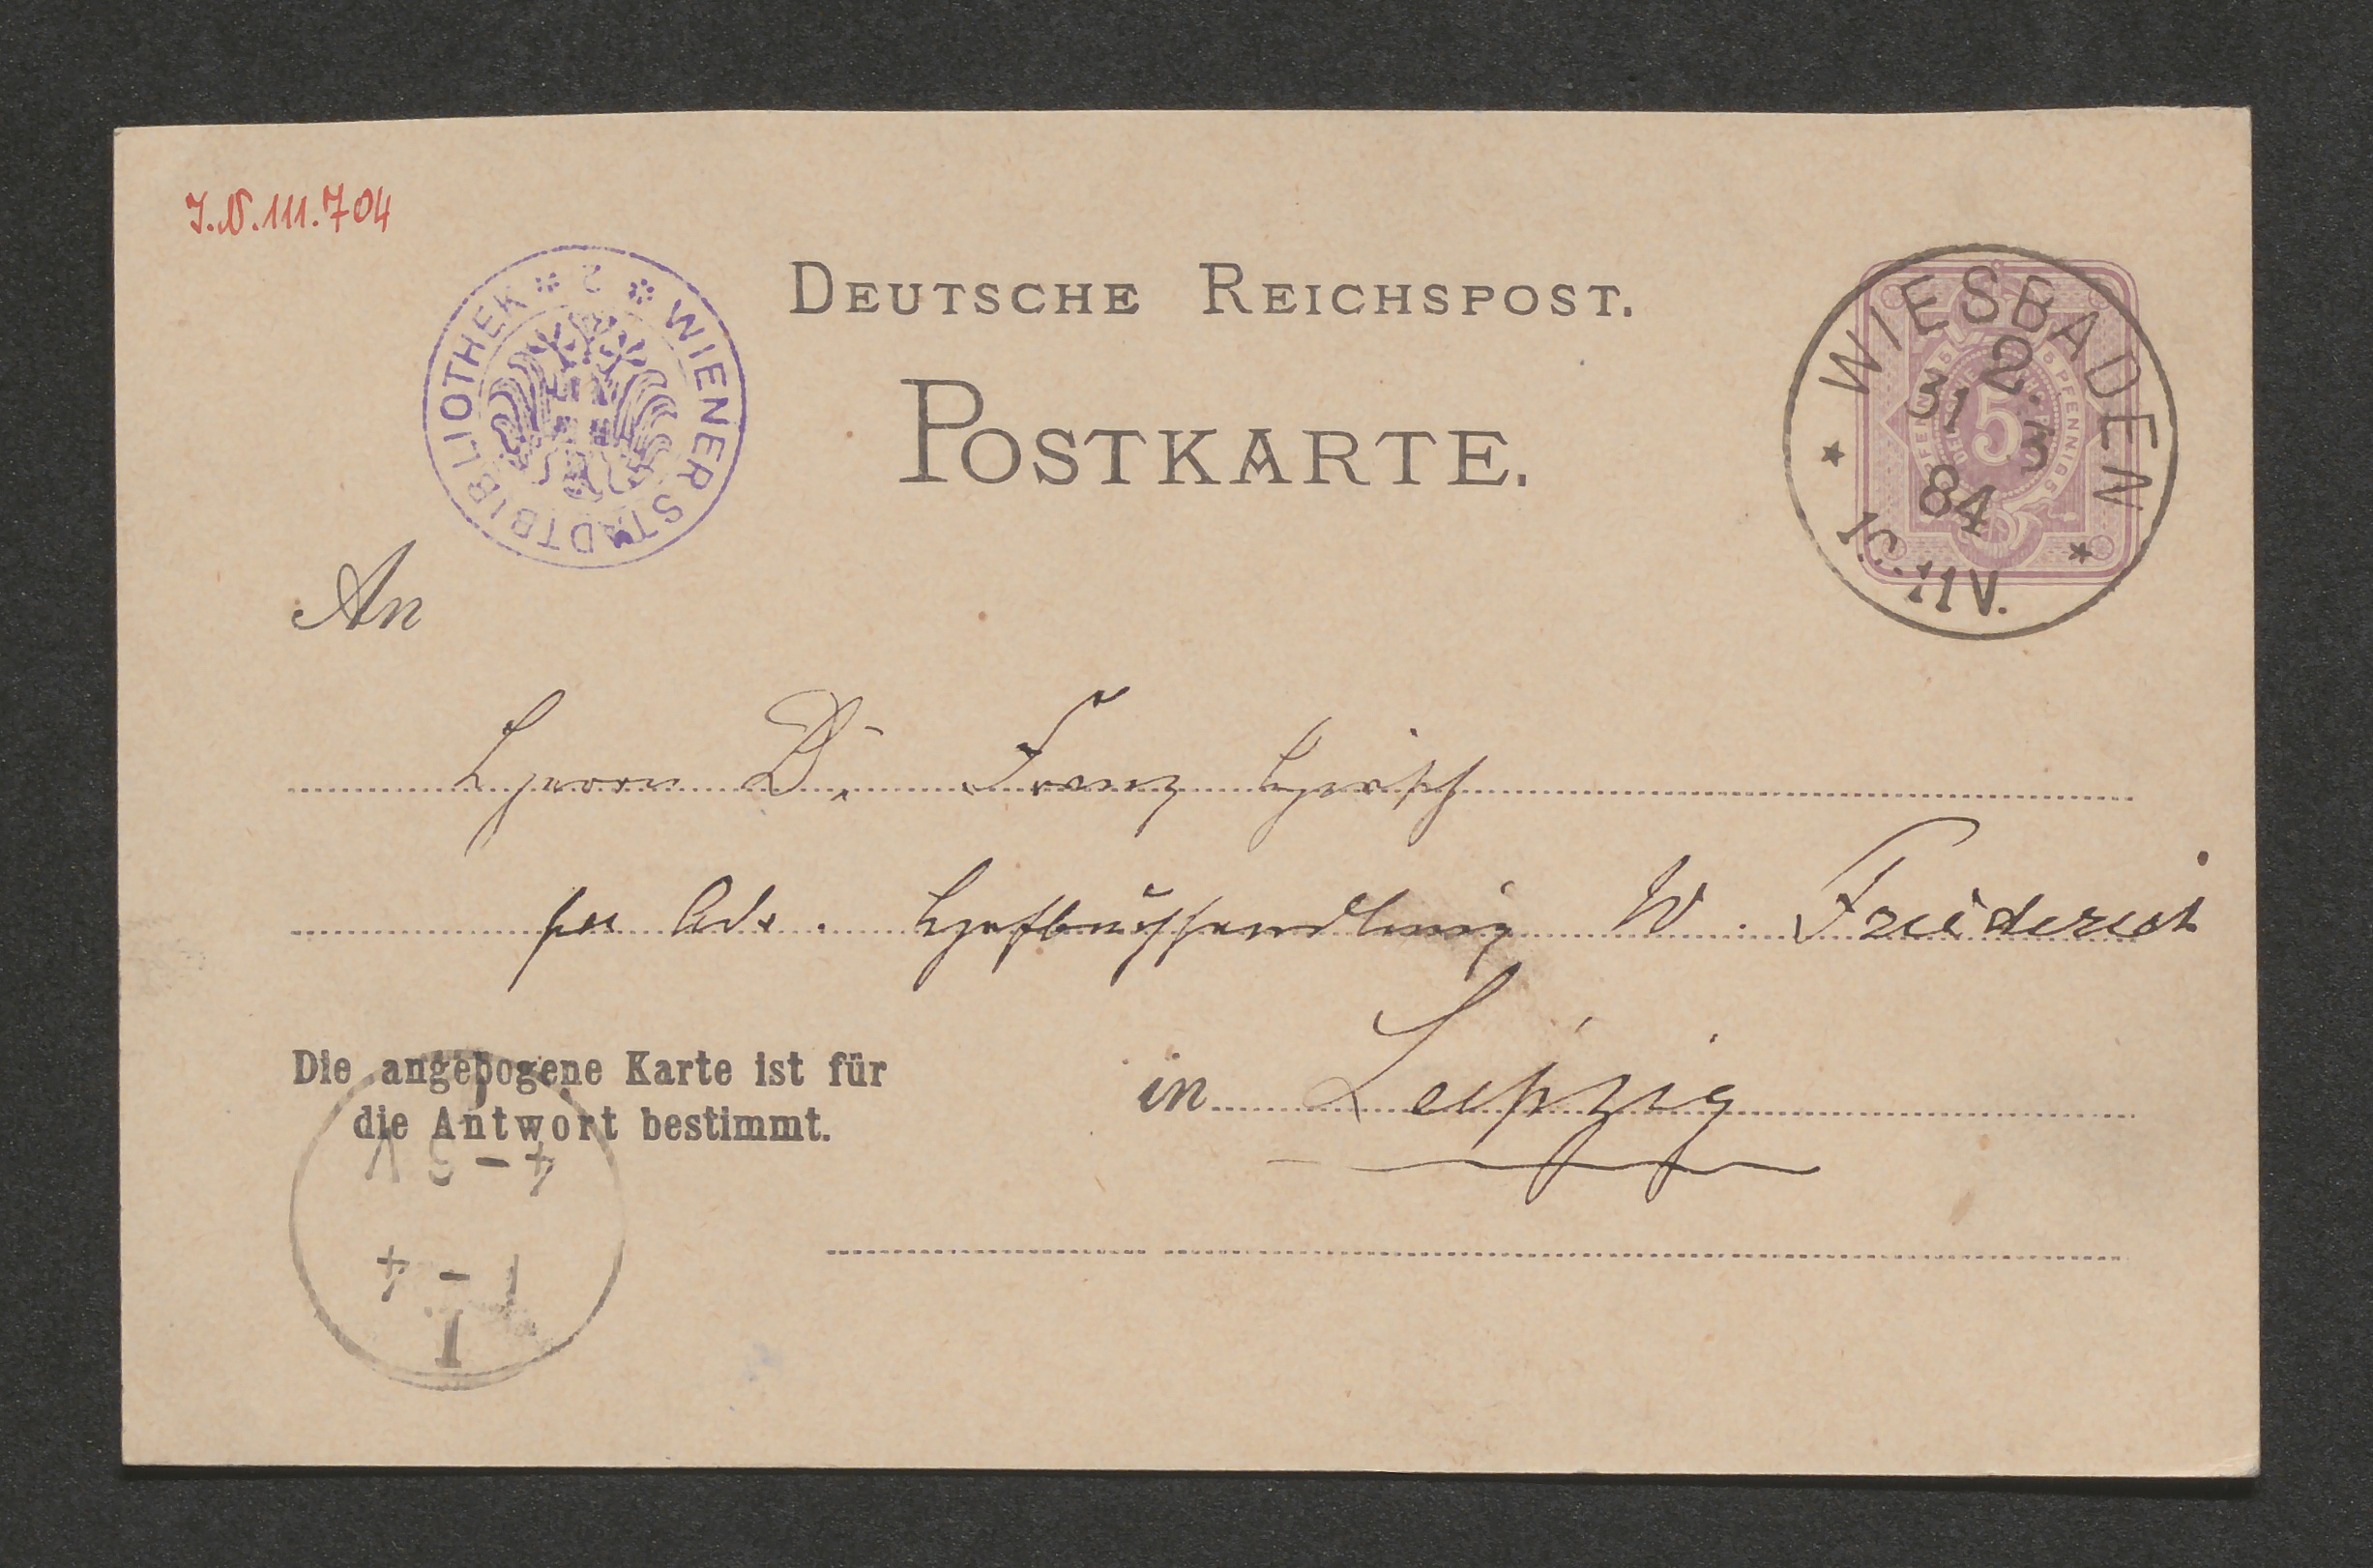 J.N.111.704
WIENER STADTBIBLIOTHEK 2
DEUTSCHE REICHSPOST.
POSTKARTE.
WIESBADEN
2.
31 3
84
10-11V.
5 PFENNIG 5
An
Herrn Dr. Franz Hirsch
per Adr. Hofbuchhandlung W. Friederich
Die angebogene Karte ist für
die Antwort bestimmt.
in Leipzig
4-5 V
1-4
I